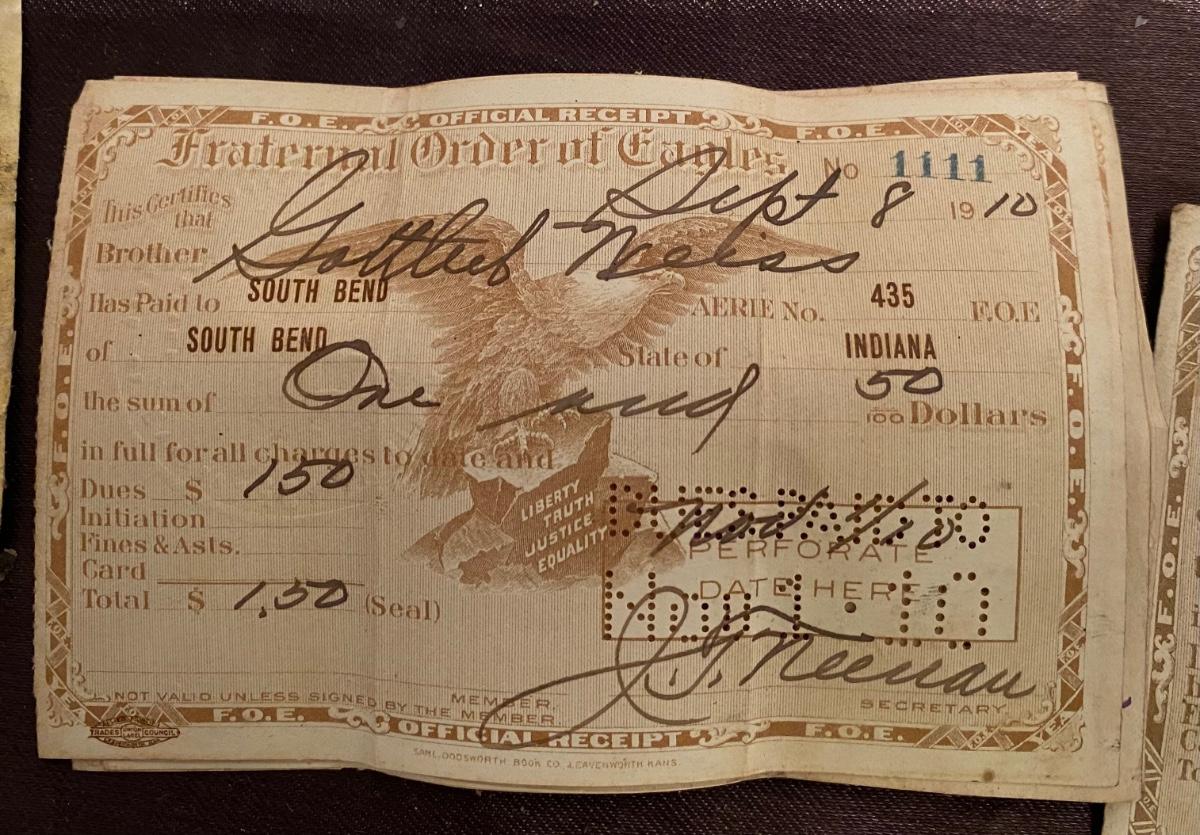 F.O.E. OFFICIAL RECEIPT F.O.E.
Fraternal Order of Eagles No 1111
This Certifies that Sept 8 1910
Brother Gottlieb Weiss
Has Paid to SOUTH BEND AERIE No. 435 F.O.E
of SOUTH BEND State of INDIANA
the sum of One and 50/100 Dollars
in full for all charges to date and
Dues $ 150
Initiation
Fines & Asts.
Card
Total $ 1.50 (Seal)
LIBERTY
TRUTH
JUSTICE
EQUALITY
Nov 1/10
PERFORATE
DATE HERE
J. F. Neenan
MEMBER. SECRETARY
NOT VALID UNLESS SIGNED BY THE MEMBER.
F.O.E. OFFICIAL RECEIPT F.O.E.
F.O.E.
F.O.E.
TRADES UNION LABEL COUNCIL
SAML. DODSWORTH BOOK CO. LEAVENWORTH KANS.
F.O.E.